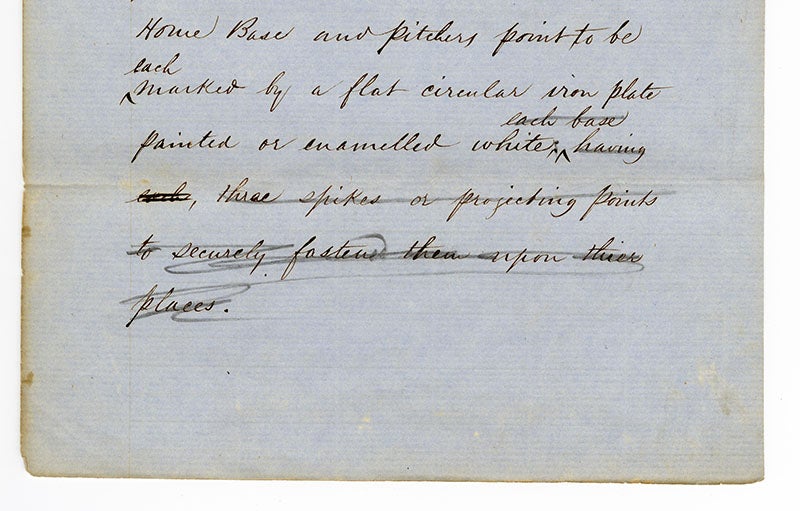 Home Base and pitchers point to be
each
marked by a flat circular iron plate
each base
painted or enamelled white; having
each, three spikes or projecting points
to securely fasten them upon thier
places.